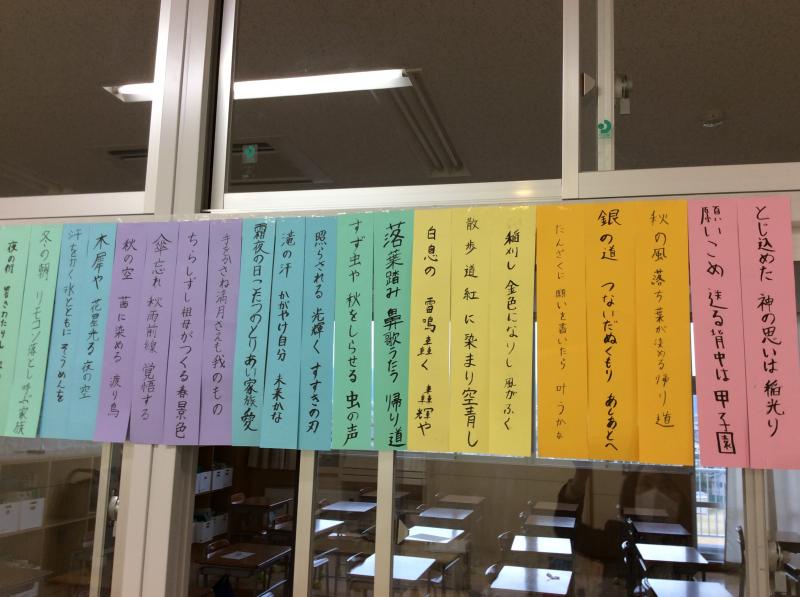 とじ込めた 神の思いは 稲光り
願いこめ 送る背中は 甲子園
秋の風 落ち葉が決める 帰り道
銀の道 つないだぬくもり あとあとへ
たんざくに 願いを書いたら 叶うかな
稲刈し 金色になりし 風がふく
散歩道 紅に染まり 空青し
白息の 雪鳴轟く 轟輝や
落葉踏み 鼻歌うたう 帰り道
すず虫や 秋をしらせる 虫の声
照らされる 光輝く すすきの刃
滝の汗 かがやけ自分 未来かな
霜夜の日 こたつのとりあい 家族愛
手をかさね 満月さえも 我のもの
ちらしずし 祖母がつくる 春景色
傘忘れ 秋雨前線 覚悟する
秋の空 茜に染める 渡り鳥
木犀や 花星光る 夜の空
汗をかく 氷とともに そうめんを
冬の朝 リモコン落とし 呼ぶ家族
夜の村